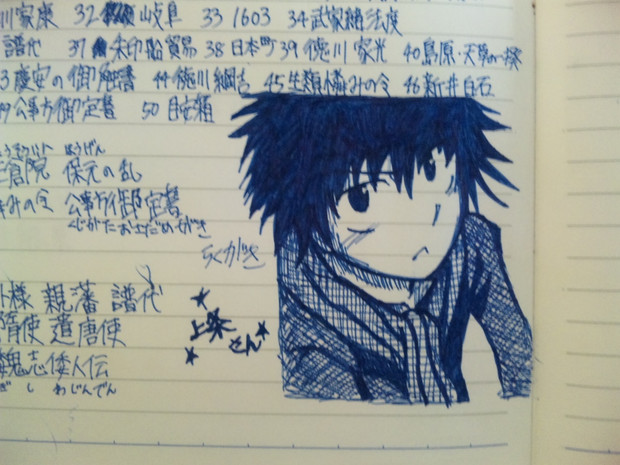 川家康 32 山岐阜 33 1603 34 武家諸法度
譜代 37 朱印船貿易 38 日本町 39 徳川家光 40 島原・天草の一揆
3 慶安の御触書 44 徳川綱吉 45 生類憐みの令 46 新井白石
49 公事方御定書 50 目安箱
ほうげん
倉院 保元の乱
みの令 公事方御定書
くじかたおさだめがき
らくがき
様 親藩 譜代
隋使 遣唐使
魏志倭人伝
ぎしわじんでん
上条さん